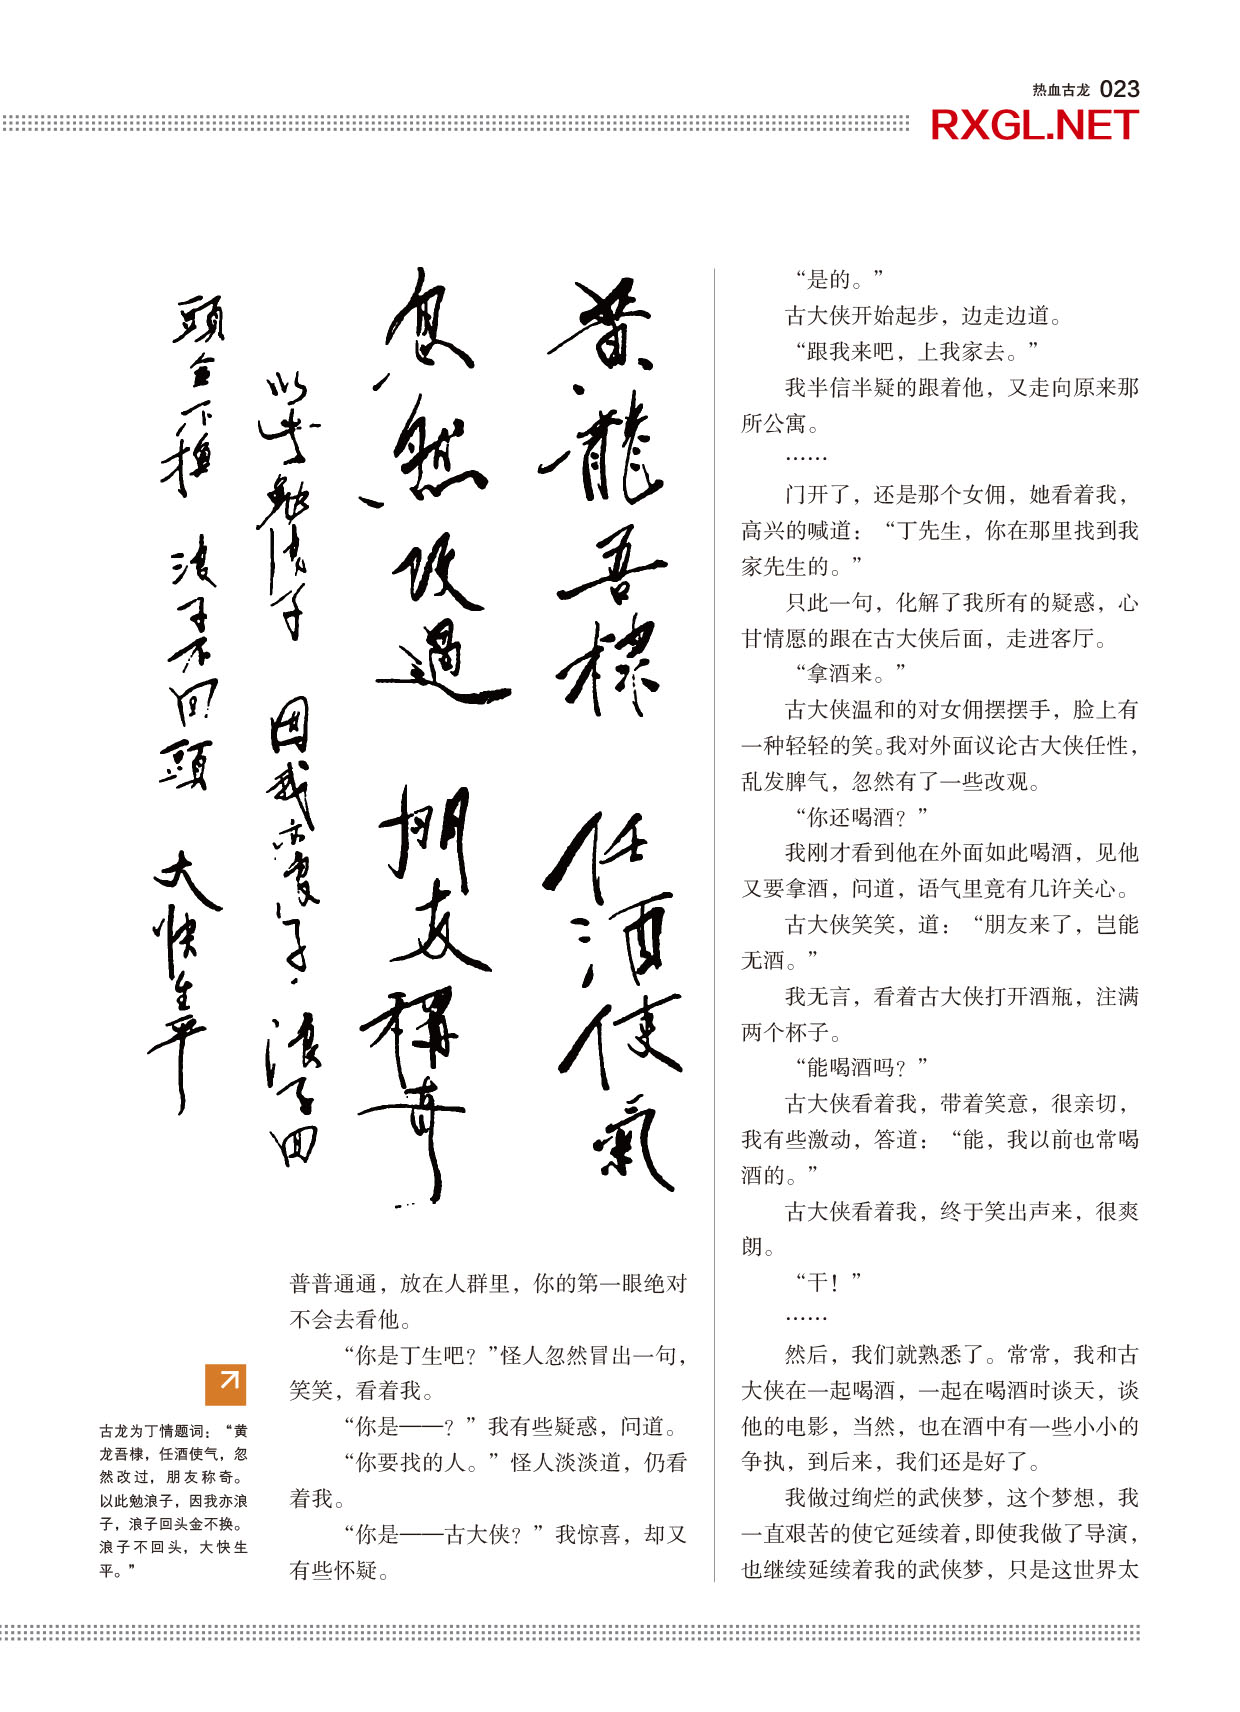 热血古龙 023
RXGL.NET
黄龍吾棣 任酒使氣
忽然改過 朋友稱奇
以此勉浪子 因我亦浪子 浪子回
頭金不換 浪子不回頭 大快生平
古龙为丁情题词：“黄
龙吾棣，任酒使气，忽
然改过，朋友称奇。
以此勉浪子，因我亦浪
子，浪子回头金不换。
浪子不回头，大快生
平。”
普普通通，放在人群里，你的第一眼绝对
不会去看他。
“你是丁生吧？”怪人忽然冒出一句，
笑笑，看着我。
“你是——？”我有些疑惑，问道。
“你要找的人。”怪人淡淡道，仍看
着我。
“你是——古大侠？”我惊喜，却又
有些怀疑。
“是的。”
古大侠开始起步，边走边道。
“跟我来吧，上我家去。”
我半信半疑的跟着他，又走向原来那
所公寓。
……
门开了，还是那个女佣，她看着我，
高兴的喊道：“丁先生，你在那里找到我
家先生的。”
只此一句，化解了我所有的疑惑，心
甘情愿的跟在古大侠后面，走进客厅。
“拿酒来。”
古大侠温和的对女佣摆摆手，脸上有
一种轻轻的笑。我对外面议论古大侠任性，
乱发脾气，忽然有了一些改观。
“你还喝酒？”
我刚才看到他在外面如此喝酒，见他
又要拿酒，问道，语气里竟有几许关心。
古大侠笑笑，道：“朋友来了，岂能
无酒。”
我无言，看着古大侠打开酒瓶，注满
两个杯子。
“能喝酒吗？”
古大侠看着我，带着笑意，很亲切，
我有些激动，答道：“能，我以前也常喝
酒的。”
古大侠看着我，终于笑出声来，很爽
朗。
“干！”
……
然后，我们就熟悉了。常常，我和古
大侠在一起喝酒，一起在喝酒时谈天，谈
他的电影，当然，也在酒中有一些小小的
争执，到后来，我们还是好了。
我做过绚烂的武侠梦，这个梦想，我
一直艰苦的使它延续着，即使我做了导演，
也继续延续着我的武侠梦，只是这世界太